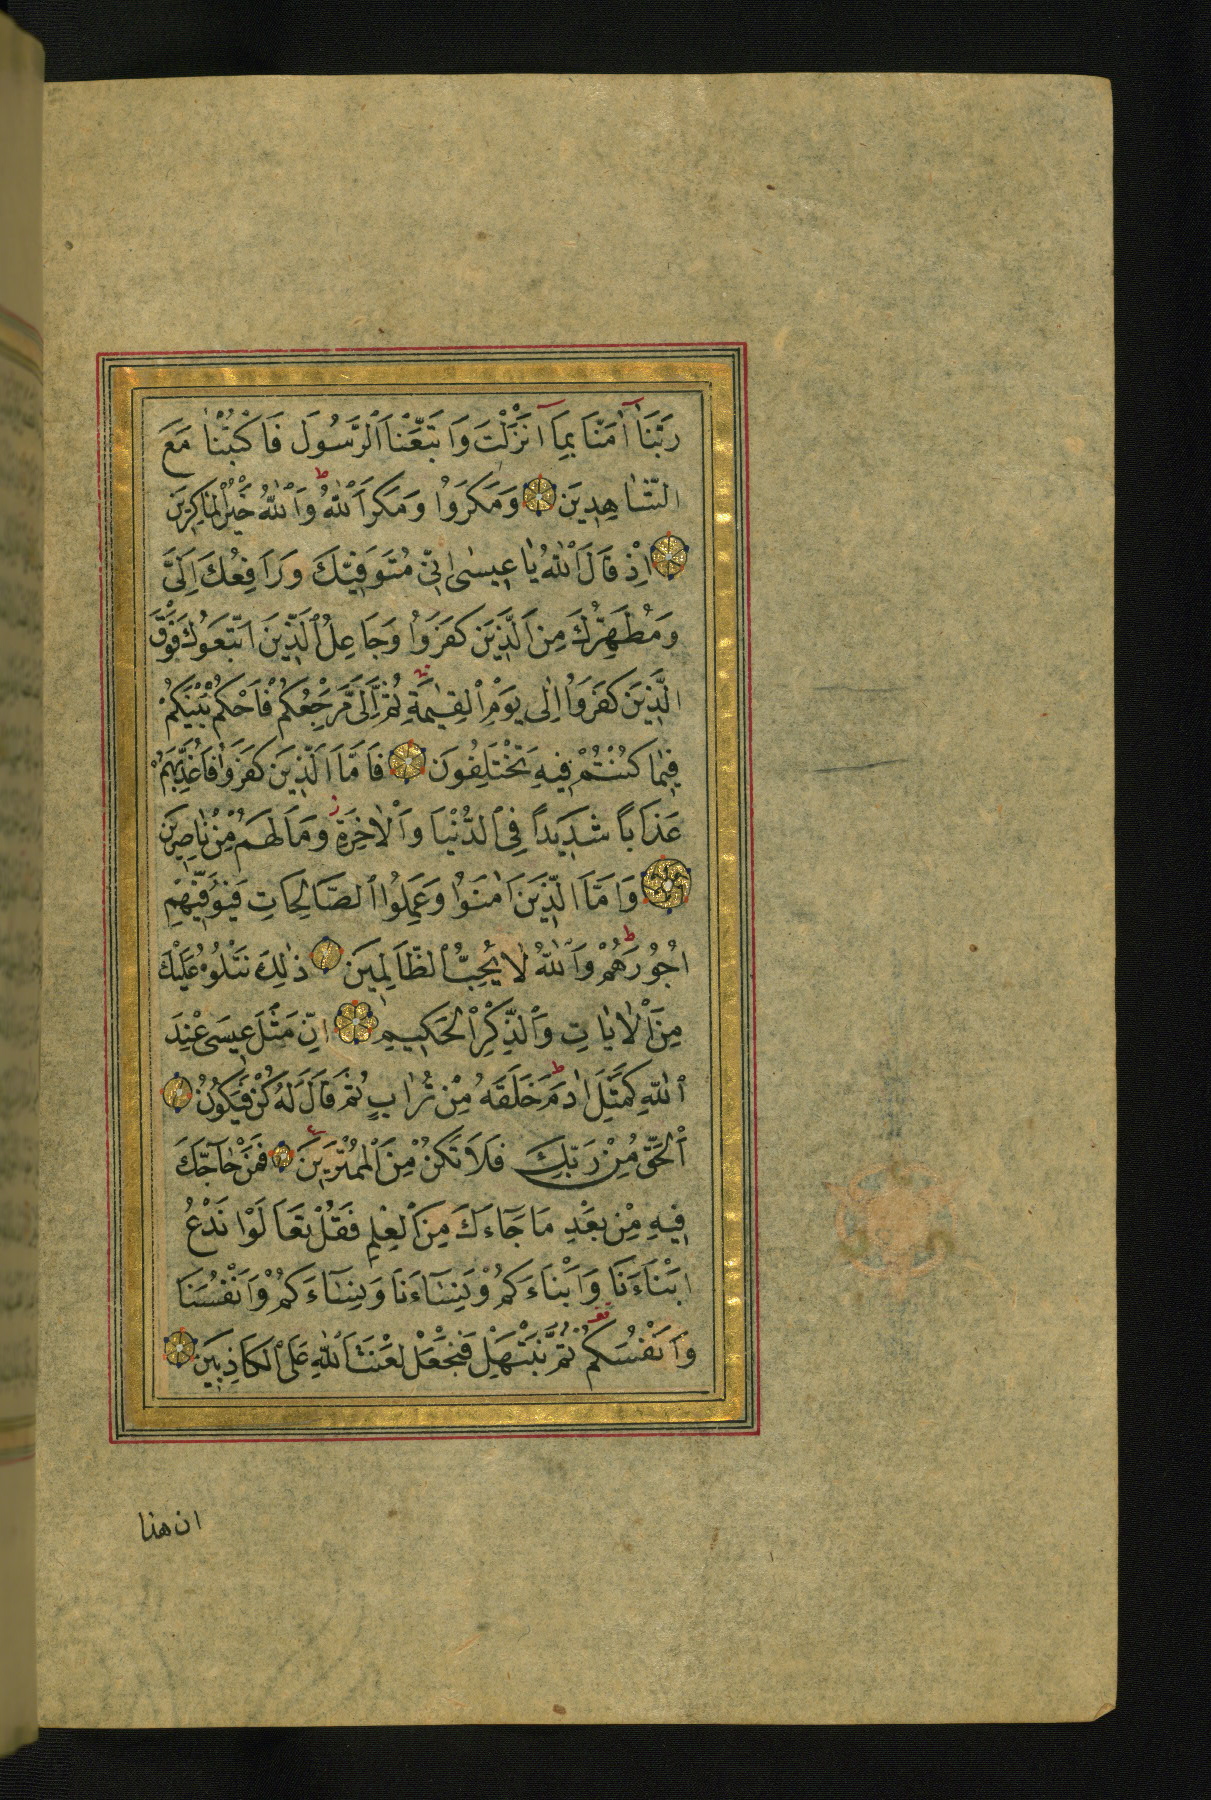 رَبَّنَا آمَنَّا بِمَا آنْزَلْتَ وَاتَّبَعْنَا ٱلرَّسُولَ فَاكْتُبْنَا مَعَ
الشَّاهِدِينَ وَمَكَرَوُا وَمَكَرَ ٱللّٰهُ وَٱللّٰهُ خَيْرُ ٱلْمَاكِرِينَ
اِذْ قَالَ ٱللّٰهُ يَا عِيسٰى اِنِّى مُتَوَفِّيكَ وَرَافِعُكَ اِلَىَّ
وَمُطَهِّرُكَ مِنَ الَّذِينَ كَفَرَوُا وَجَاعِلُ ٱلَّذِينَ اتَّبَعَوُكَ فَوْقَ
الَّذِينَ كَفَرَوُا اِلٰى يَوْمِ ٱلْقِيٰمَةِ ثُمَّ اِلَىَّ مَرْجِعُكُمْ فَاَحْكُمُ بَيْنَكُمْ
فِيمَا كُنْتُمْ فِيهِ تَخْتَلِفُونَ فَاَمَّا الَّذِينَ كَفَرَوُا فَاُعَذِّبُهُمْ
عَذَابًا شَدِيدًا فِى ٱلدُّنْيَا وَٱلْاٰخِرَةِ وَمَا لَهُمْ مِنْ نَاصِرِينَ
وَاَمَّا الَّذِينَ اٰمَنَوُا وَعَمِلُوا ٱلصَّالِحَاتِ فَيُوَفِّيهِمْ
اُجُورَهُمْ وَٱللّٰهُ لَا يُحِبُّ ٱلظَّالِمِينَ ذٰلِكَ نَتْلُوهُ عَلَيْكَ
مِنَ ٱلْاٰيَاتِ وَٱلذِّكْرِ ٱلْحَكِيمِ اِنَّ مَثَلَ عِيسَى عِنْدَ
ٱللّٰهِ كَمَثَلِ اٰدَمَ خَلَقَهُ مِنْ تُرَابٍ ثُمَّ قَالَ لَهُ كُنْ فَيَكُونُ
ٱلْحَقُّ مِنْ رَبِّكَ فَلَا تَكُنْ مِنَ ٱلْمُمْتَرِينَ فَمَنْ حَآجَّكَ
فِيهِ مِنْ بَعْدِ مَا جَآءَكَ مِنَ ٱلْعِلْمِ فَقُلْ تَعَالَوْا نَدْعُ
اَبْنَاءَنَا وَاَبْنَاءَكُمْ وَنِسَاءَنَا وَنِسَاءَكُمْ وَاَنْفُسَنَا
وَاَنْفُسَكُمْ ثُمَّ نَبْتَهِلْ فَنَجْعَلْ لَعْنَتَ ٱللّٰهِ عَلَى ٱلْكَاذِبِينَ
ان هذا